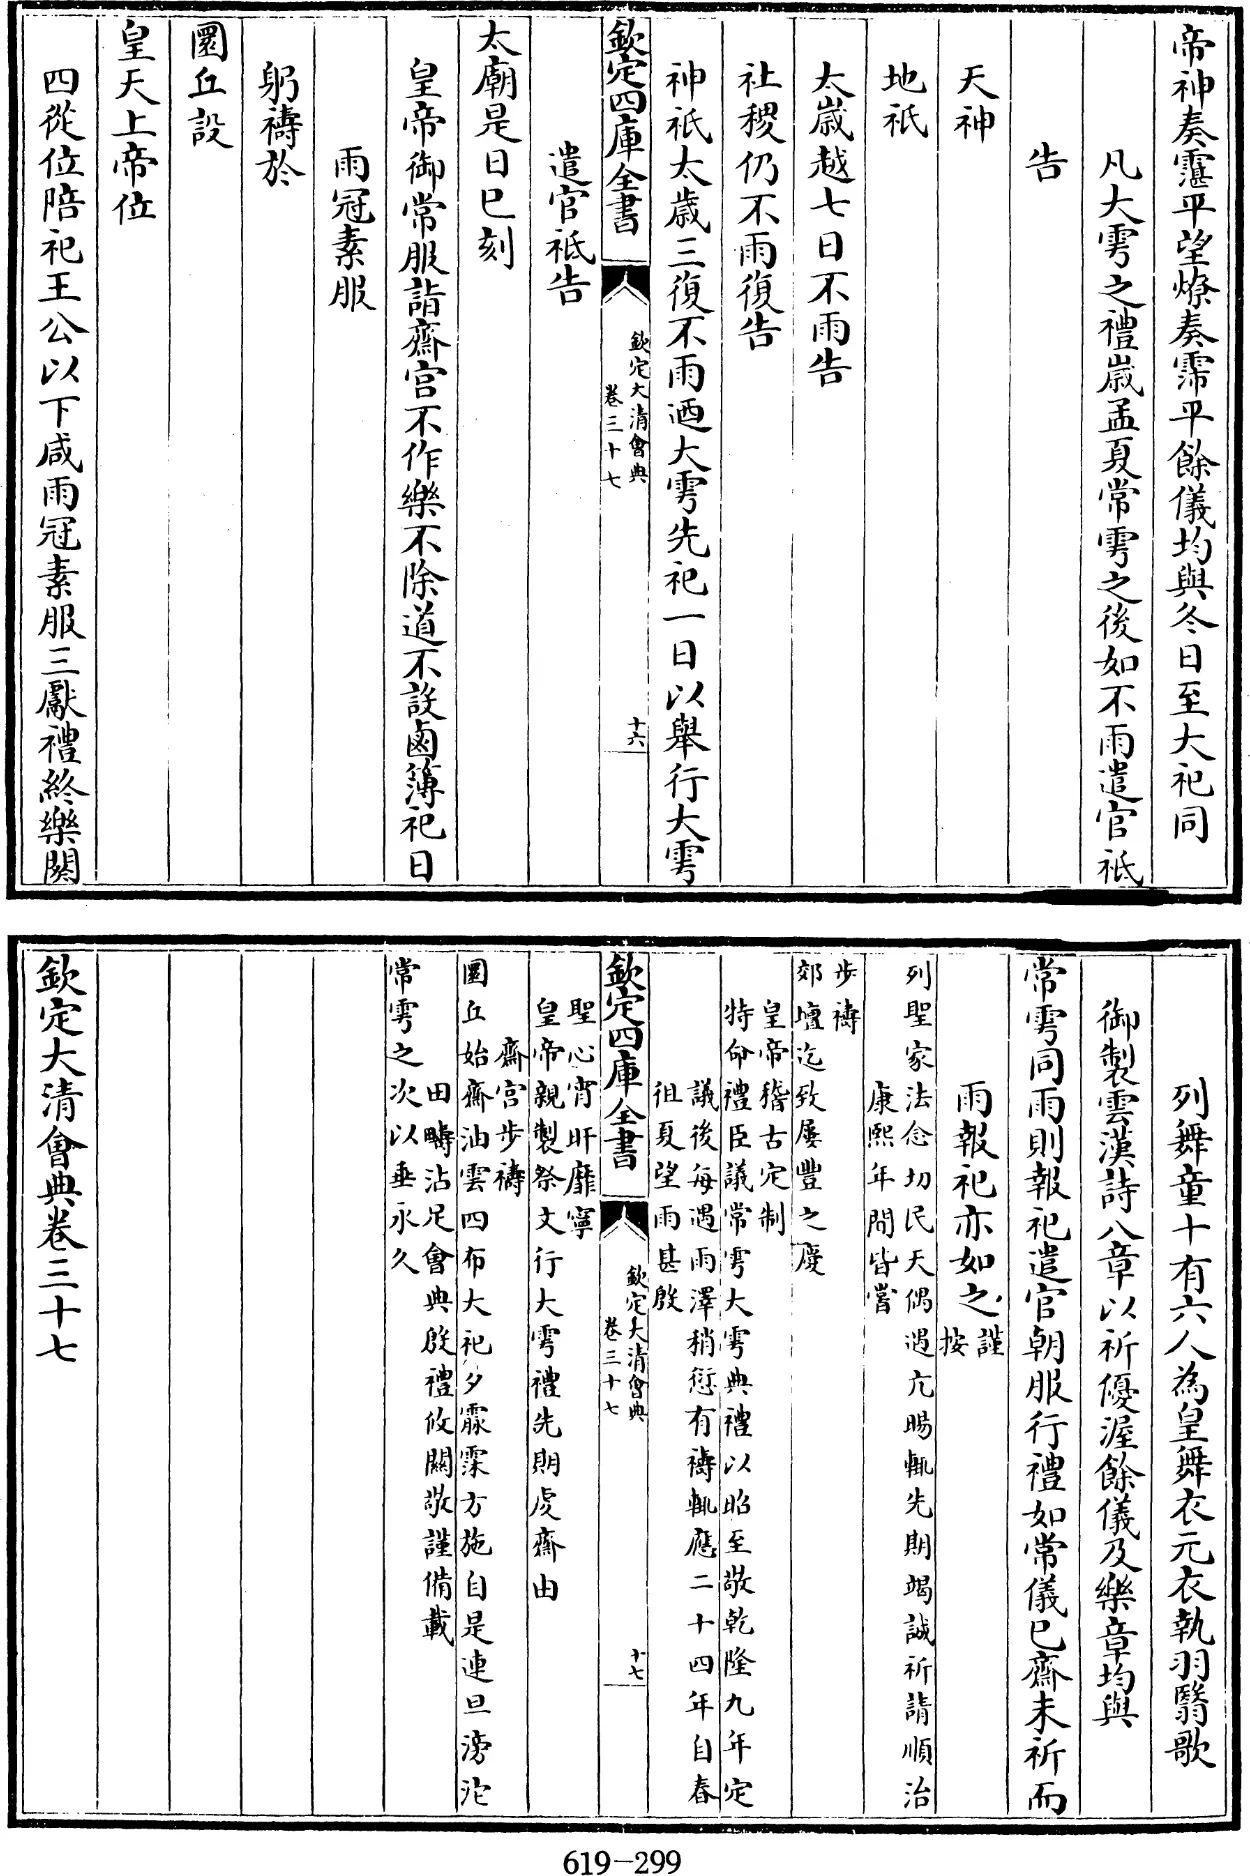 帝神奏霮平望燎奏霈平餘儀均與冬日至大祀同
凡大雩之禮歲孟夏常雩之後如不雨遣官祗
告
天神
地祇
太歲越七日不雨告
社稷仍不雨復告
神祇太歲三復不雨迺大雩先祀一日以舉行大雩
欽定四庫全書
欽定大清會典
卷三十七
十六
遣官祗告
太廟是日巳刻
皇帝御常服詣齋宮不作樂不除道不設鹵簿祀日
雨冠素服
躬禱於
圜丘設
皇天上帝位
四從位陪祀王公以下咸雨冠素服三獻禮終樂闋
列舞童十有六人為皇舞衣元衣執羽翳歌
御製雲漢詩八章以祈優渥餘儀及樂章均與
常雩同雨則報祀遣官朝服行禮如常儀已齋未祈而
雨報祀亦如之謹
按
列聖家法念切民天偶遇亢暘輒先期竭誠祈請順治
康熙年間皆嘗
步禱
郊壇迄致屢豐之慶
皇帝稽古定制
特命禮臣議常雩大雩典禮以昭至敬乾隆九年定
議後每遇雨澤稍愆有禱輒應二十四年自春
徂夏望雨甚殷
欽定四庫全書
欽定大清會典
卷三十七
十七
聖心宵旰靡寧
皇帝親製祭文行大雩禮先期虔齋由
齋宮步禱
圜丘始齋油雲四布大祀夕霡霂方施自是連旦滂沱
田疇沾足會典殷禮攸關敬謹備載
常雩之次以垂永久
欽定大清會典卷三十七
619-299